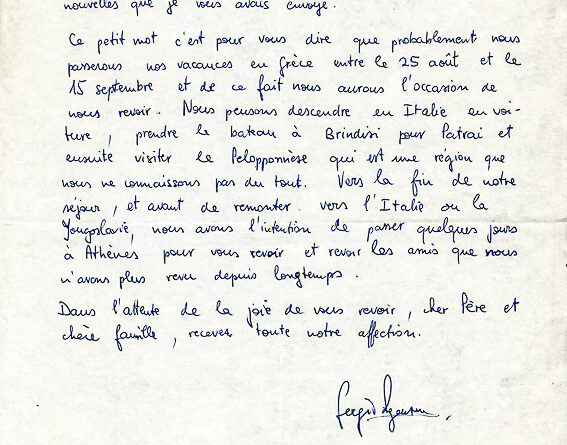 nouvelles que je vous avais envoyé.
Ce petit mot c'est pour vous dire que probablement nous
passerons nos vacances en Grèce entre le 25 août et le
15 septembre et de ce fait nous aurons l'occasion de
nous revoir. Nous pensons descendre en Italie en voi-
ture, prendre le bateau à Brindisi pour Patrai et
ensuite visiter le Pelopponnèse qui est une région que
nous ne connaissons pas du tout. Vers la fin de notre
séjour, et avant de remonter vers l'Italie ou la
Yougoslavie, nous avons l'intention de passer quelques jours
à Athènes pour vous revoir et revoir les amis que nous
n'avons plus revu depuis longtemps.
Dans l'attente de la joie de vous revoir, cher Père et
chère famille, recevez toute notre affection.